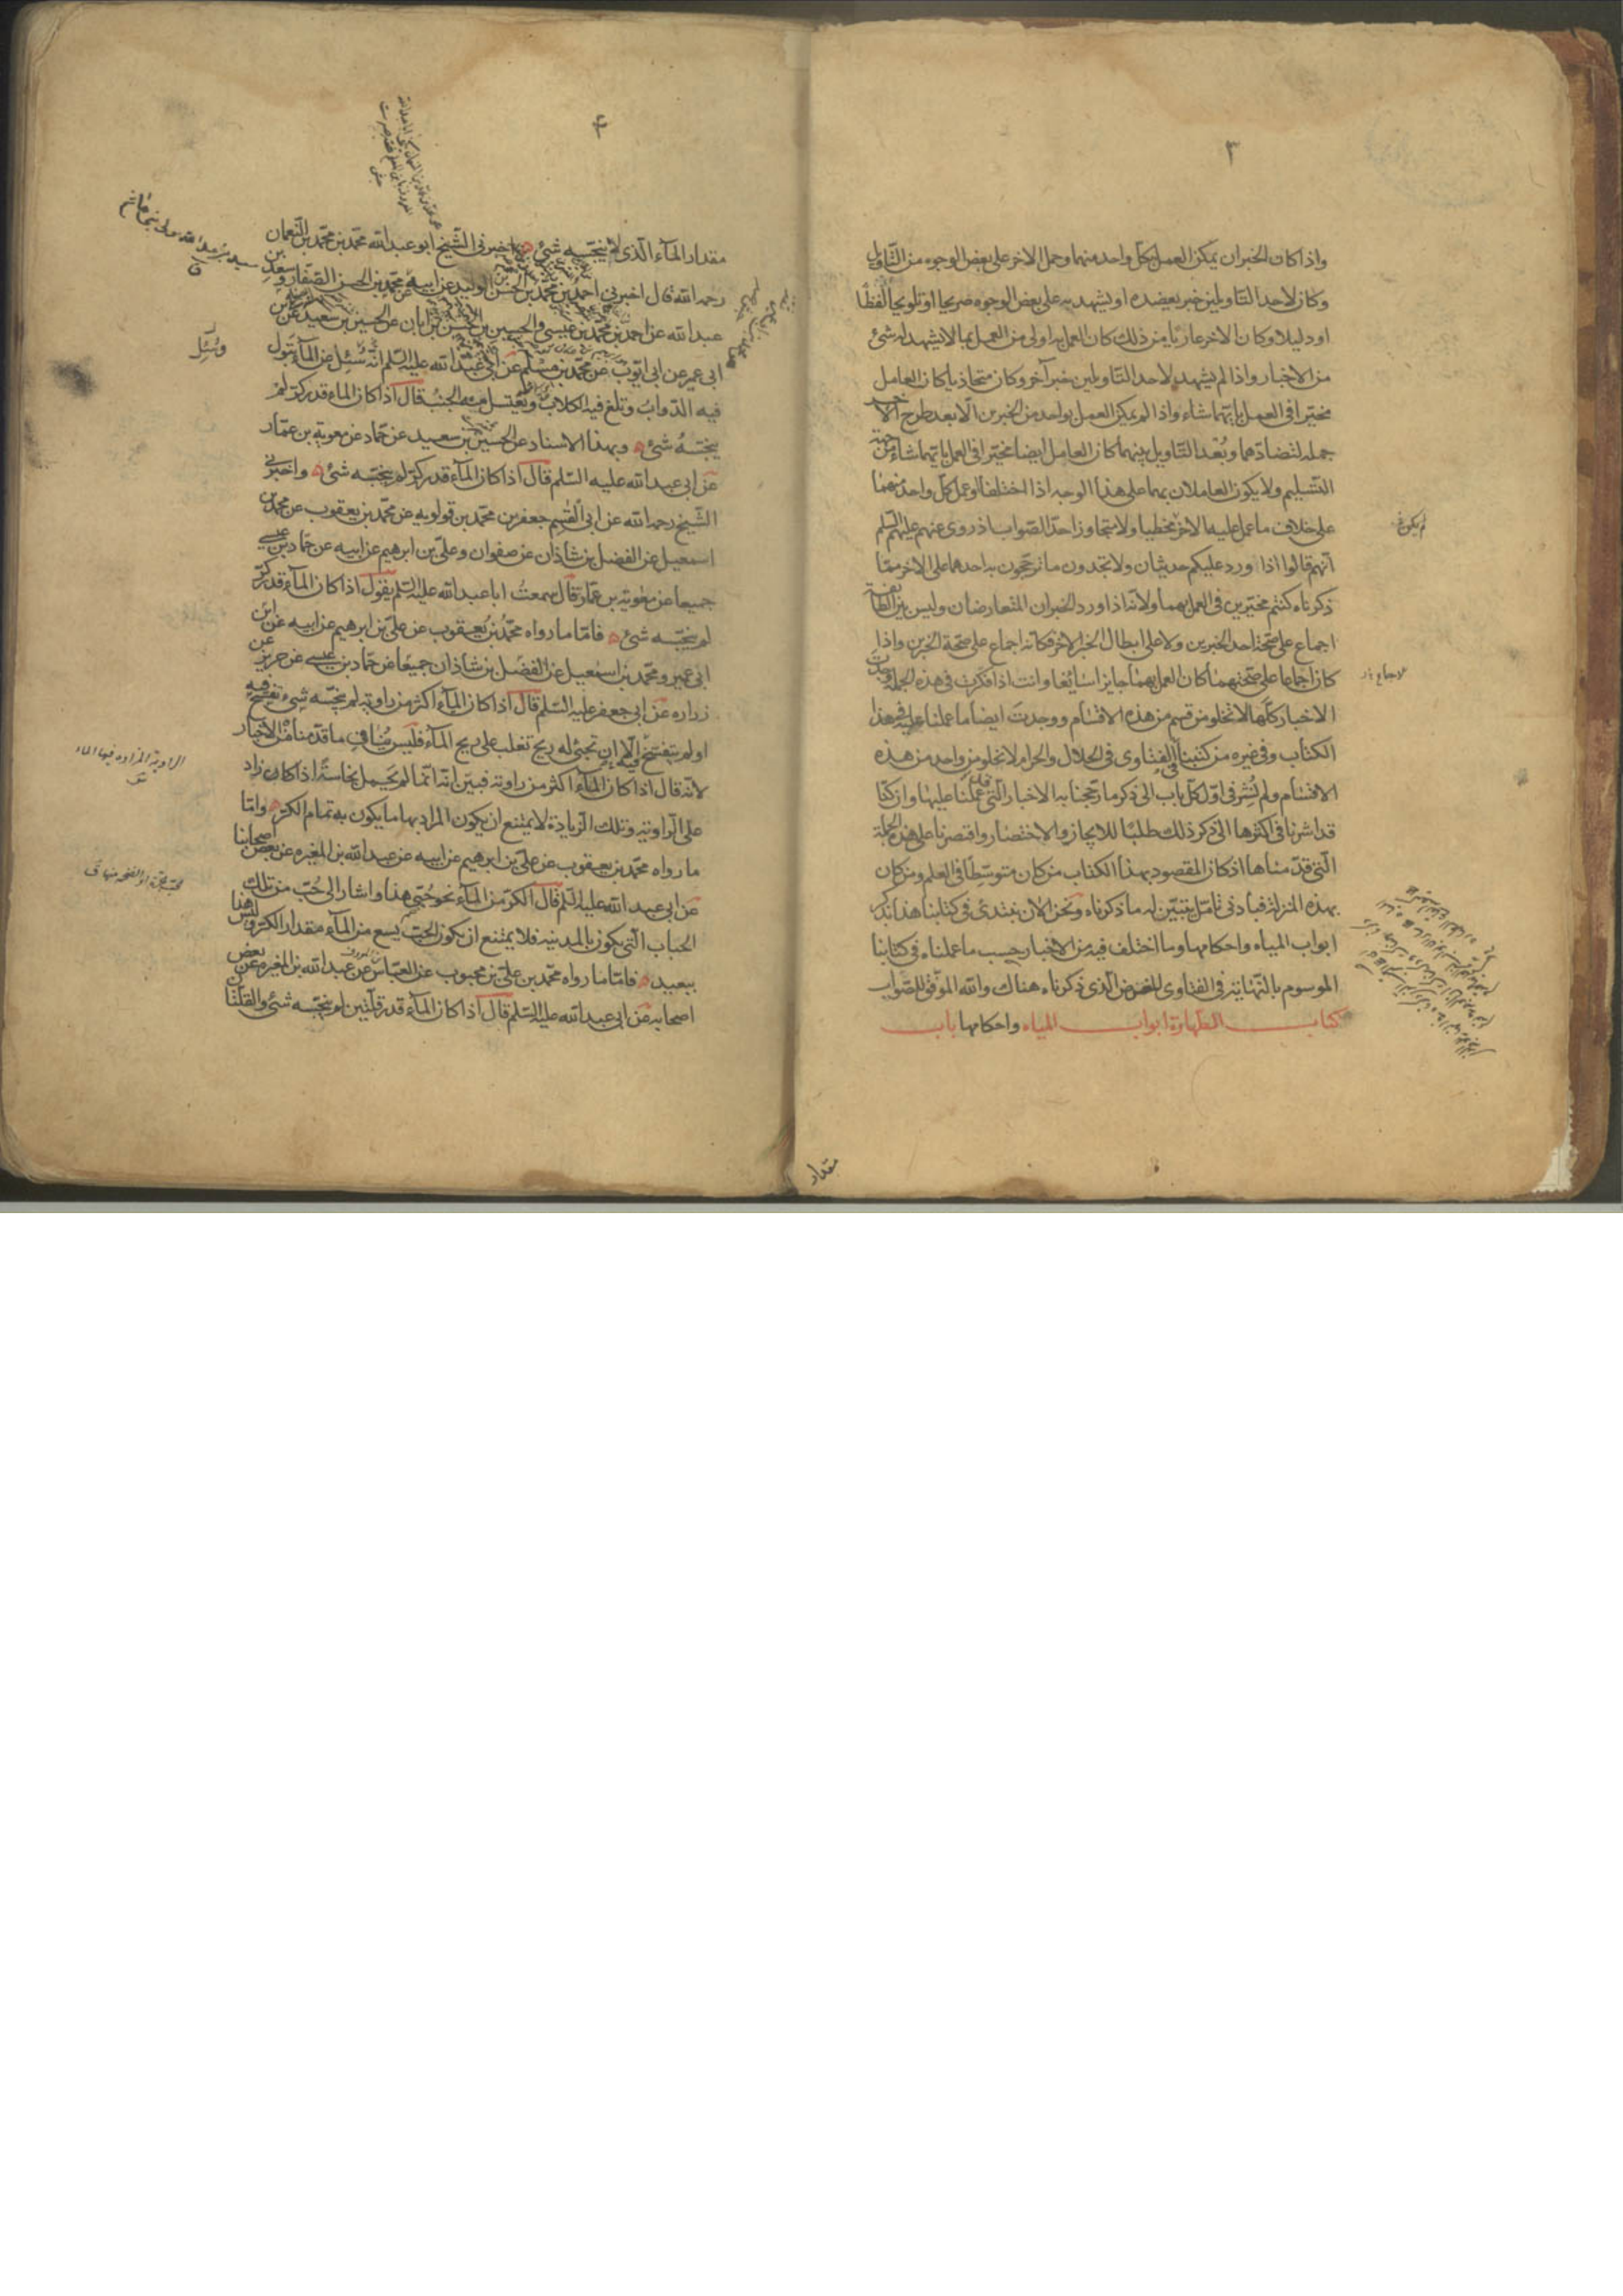 ٣
واذا كان الخبران يمكن العمل بكل واحد منهما وحمل الاخر على بعض الوجوه من التّاويل
وكان لاحد التاويلين خبر يعضده او يشهد به على بعض الوجوه صريحا او تلويحا لفظًا
او دليلا وكان الاخر عاريا من ذلك كان العمل به اولى من العمل بما لا يشهد له شئ
من الاخبار واذا لم يشهد لاحد التاويلين خبر آخر وكان متحاذيا كان العامل
مخيّرا فى العمل بايّهما شاء واذا لم يمكن العمل بواحد من الخبرين الّا بعد طرح الاخر
جملة لتضادّهما وبُعْد التّاويل بينهما كان العامل ايضا مخيّرا فى العمل بايّهما شاء من جهة
التسليم ولا يكون العاملان بهما على هذا الوجه اذا اختلفا وعمل كلّ واحد منهما
على خلاف ما عمل عليه الاخر مخطيا ولا متجاوزا حدّ الصّواب اذ روى عنهم عليهم السّلم
انّهم قالوا اذا ورد عليكم حديثان ولا تجدون ما ترجّحون به احدهما على الاخر ممّا
ذكرناه كنتم مخيّرين فى العمل بهما ولانّه اذا ورد الخبران المتعارضان وليس بين الطائفة
اجماع على صحّة احد الخبرين ولا على ابطال الخبر الاخر فكانّه اجماع على صحّة الخبرين واذا
كان اجماعا على صحّتهما كان العمل بهما جايزا سائغا وانت اذا فكّرت فى هذه الجملة وجدت
الاخبار كلّها لا تخلو من قسم من هذه الاقسام ووجدت ايضا ما عملنا عليه فى هذا
الكتاب وفى غيره من كتبنا فى الفتاوى فى الحلال والحرام لا تخلو من واحد من هذه
الاقسام ولم نُشِر فى اوّل كلّ باب الى ذكر ما رجّحنا به الاخبار التى قد عملنا عليها وان كنّا
قد اشرنا فى اكثرها الى ذكر ذلك طلبًا للايجاز والاختصار واقتصرنا على هذه الجملة
الّتى قدّمناها اذ كان المقصود بهذا الكتاب من كان متوسّطًا فى العلم ومن كان
بهذه المنزلة فبادنى تامّل يتبيّن له ما ذكرناه ونحن الان نبتدى فى كتابنا هذا بذكر
ابواب المياه واحكامها وما اختلف فيه من الاخبار حسب ما عملناه فى كتابنا
الموسوم بالنّهاية فى الفتاوى للغرض الّذى ذكرناه هناك والله الموفّق للصّواب
كتاب الطهارة ابواب المياه واحكامها باب
مقدار
٤
مقدار المآء الّذى لا ينجّسه شئ اخبرنى الشّيخ ابو عبدالله محمّد بن محمّد بن النّعمان
رحمه الله قال اخبرنى احمد بن محمّد بن الحسن بن الوليد عن ابيه عن محمّد بن الحسن الصّفار وسعد بن
عبد الله عن احمد بن محمّد بن عيسى والحسين بن الحسن بن ابان عن الحسين بن سعيد عن ابن
ابى عمير عن ابى ايّوب عن محمّد بن مسلم عن ابى عبد الله عليه السّلم انّه سُئِل عن المآء تبول
فيه الدّوابّ وتلغ فيه الكلاب ويغتسل منه الجنب قال اذا كان الماء قدر كرّ لم
ينجّسهُ شئ وبهذا الاسناد عن الحسين بن سعيد عن حمّاد عن معوية بن عمّار
عن ابى عبد الله عليه السّلم قال اذا كان المآء قدر كرّ لم ينجّسه شئ واخبرنى
الشّيخ رحمه الله عن ابى القسم جعفر بن محمّد بن قولويه عن محمّد بن يعقوب عن محمّد بن
اسمعيل عن الفضل بن شاذان عن صفوان وعلىّ بن ابرهيم عن ابيه عن حمّاد بن عيسى
جميعا عن معوية بن عمّار قال سمعتُ ابا عبد الله عليه السّلم يقول اذا كان المآء قدر كرّ
لم ينجّسه شئ فامّا ما رواه محمّد بن يعقوب عن علىّ بن ابرهيم عن ابيه عن ابن
ابى عمير ومحمّد بن اسمعيل عن الفضل بن شاذان جميعًا عن حمّاد بن عيسى عن حريز عن
زراره عن ابى جعفر عليه السّلم قال اذا كان المآء اكثر من راوية لم ينجّسه شئ تفسّخ فيه
او لم يتفسّخ فيه الّا ان تجئ له ريح تغلب على ريح المآء فليس ينافى ما قدّمناه من الاخبار
لانّه قال اذا كان المآء اكثر من راوية فبيّن انّه انّما لم يحمل نجاسةً اذا كان زاد
على الرّاوية وتلك الزّيادة لا يمتنع ان يكون المراد بها ما يكون به تمام الكرّ وامّا
ما رواه محمّد بن يعقوب عن علىّ بن ابرهيم عن ابيه عن عبد الله بن المغيره عن بعض اصحابنا
عن ابى عبد الله عليه السّلم قال الكرّ من المآء نحو حُبّى هذا واشار الى حُبّ من تلك
الحباب الّتى يكون بالمدينه فلا يمتنع ان يكون الحبّ يسع من المآء مقدار الكرّ وليس هذا
ببعيد فامّا ما رواه محمّد بن علىّ بن محبوب عن العبّاس عن عبد الله بن المغيره عن بعض
اصحابه عن ابى عبد الله عليه السّلم قال اذا كان المآء قدر قلّتين لم ينجّسه شئ والقلّتا
وسُئِل
الراوية المزاده فيها الماء